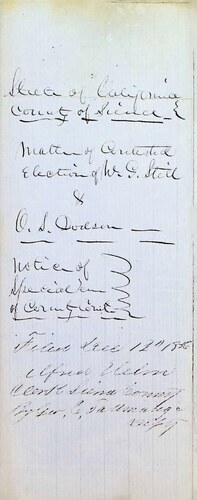 State of California
County of Sierra
Matter of Contested
Election of Wm G. Still
&
O. S. Dodson
Notice of
Special Term
of County Court
Filed Dec 12th
Alfred Helm
Clerk Sierra County
By Geo. C.
Depty